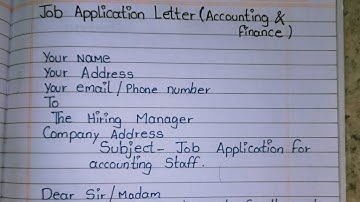 Job Application Letter (Accounting &
finance)
Your NAME
Your Address
Your email/Phone number
To
The Hiring Manager
Company Address
Subject- Job Application for
accounting Staff.
Dear Sir/Madam